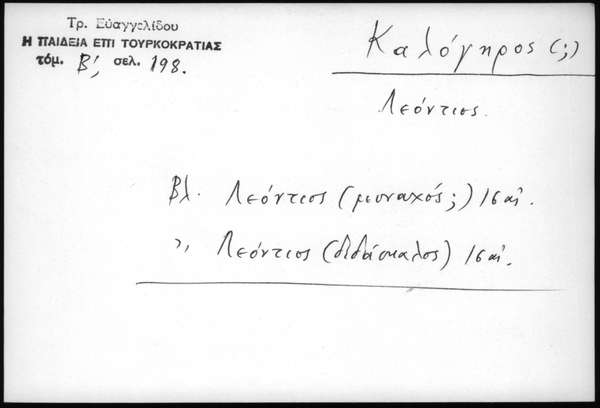 Τρ. Εὐαγγελίδου
Η ΠΑΙΔΕΙΑ ΕΠΙ ΤΟΥΡΚΟΚΡΑΤΙΑΣ
τόμ. Β', σελ. 198.
Καλόγηρος (;)
Λεόντιος.
Βλ. Λεόντιος (μοναχός;) 16 αἰ.
〃 Λεόντιος (διδάσκαλος) 16 αἰ.